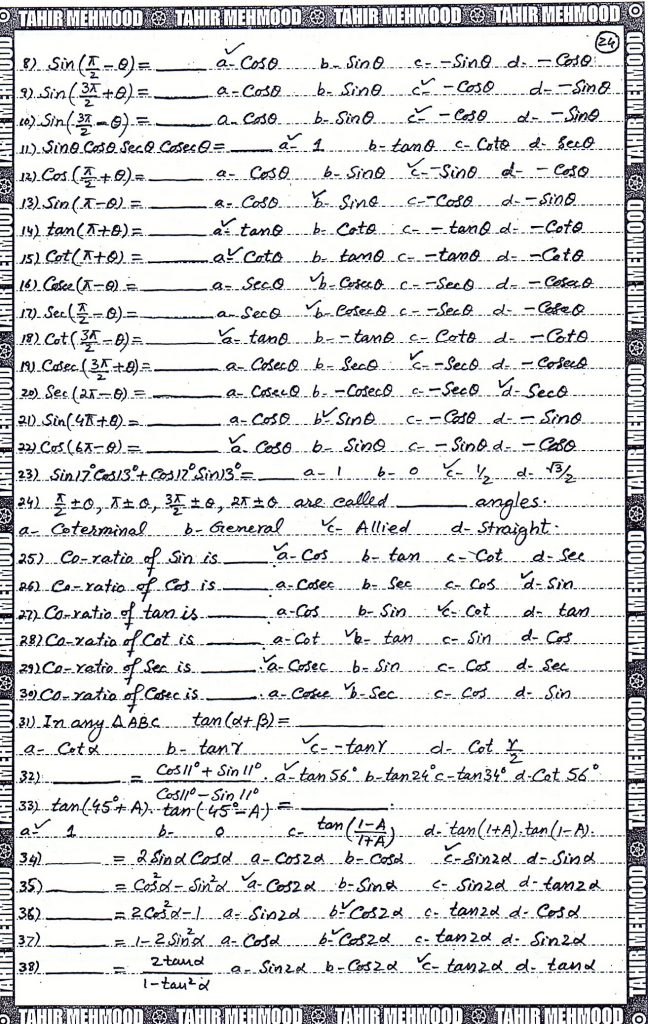 TAHIR MEHMOOD TAHIR MEHMOOD TAHIR MEHMOOD TAHIR MEHMOOD
24
8) Sin(π/2 - θ) = ____ a✓ Cosθ b- Sinθ c- -Sinθ d- - Cosθ
9) Sin(3π/2 + θ) = ____ a- Cosθ b- Sinθ c✓ - Cosθ d- - Sinθ
10) Sin(3π/2 - θ) = ____ a- Cosθ b- Sinθ c✓ - Cosθ d- - Sinθ
11) Sinθ Cosθ Secθ Cosecθ = ____ a✓ 1 b- tanθ c- Cotθ d- Secθ
12) Cos(π/2 + θ) = ____ a- Cosθ b- Sinθ ✓c- -Sinθ d- - Cosθ
13) Sin(π - θ) = ____ a- Cosθ ✓b- Sinθ c- -Cosθ d- - Sinθ
14) tan(π + θ) = ____ a✓ tanθ b- Cotθ c- - tanθ d- - Cotθ
15) Cot(π + θ) = ____ a✓ Cotθ b- tanθ c- - tanθ d- - Cotθ
16) Cosec(π - θ) = ____ a- Secθ ✓b- Cosecθ c- - Secθ d- - Cosecθ
17) Sec(π/2 - θ) = ____ a- Secθ ✓b- Cosecθ c- - Secθ d- - Cosecθ
18) Cot(3π/2 - θ) = ____ ✓a- tanθ b- - tanθ c- Cotθ d- - Cotθ
19) Cosec(3π/2 + θ) = ____ a- Cosecθ b- Secθ ✓c- - Secθ d- - Cosecθ
20) Sec(2π - θ) = ____ a- Cosecθ b- - Cosecθ c- - Secθ ✓d- Secθ
21) Sin(4π + θ) = ____ a- Cosθ b✓ Sinθ c- - Cosθ d- - Sinθ
22) Cos(6π - θ) = ____ ✓a- Cosθ b- Sinθ c- - Sinθ d- - Cosθ
23) Sin17° Cos13° + Cos17° Sin13° = ____ a- 1 b- 0 ✓c- 1/2 d- √3/2
24) π/2 ± θ, π ± θ, 3π/2 ± θ, 2π ± θ are called ____ angles.
a- Coterminal b- General ✓c- Allied d- Straight.
25) Co-ratio of Sin is ____ ✓a- Cos b- tan c- Cot d- Sec
26) Co-ratio of Cos is ____ a- Cosec b- Sec c- Cos ✓d- Sin
27) Co-ratio of tan is ____ a- Cos b- Sin ✓c- Cot d- tan
28) Co-ratio of Cot is ____ a- Cot ✓b- tan c- Sin d- Cos
29) Co-ratio of Sec is ____ ✓a- Cosec b- Sin c- Cos d- Sec
30) Co-ratio of Cosec is ____ a- Cosec ✓b- Sec c- Cos d- Sin
31) In any △ABC tan(α + β) = ____
a- Cotα b- tanγ ✓c- - tanγ d- Cot γ/2
32) ____ = Cos11° + Sin11° / Cos11° - Sin11° . a✓ tan56° b- tan24° c- tan34° d- Cot 56°
33) tan(45° + A). tan(45° - A) = ____.
a✓ 1 b- 0 c- tan(1-A/1+A) d- tan(1+A).tan(1-A).
34) ____ = 2Sinα Cosα a- Cos2α b- Cosα ✓c- Sin2α d- Sinα
35) ____ = Cos²α - Sin²α ✓a- Cos2α b- Sinα c- Sin2α d- tan2α
36) ____ = 2Cos²α - 1 a- Sin2α b✓ Cos2α c- tan2α d- Cosα
37) ____ = 1 - 2Sin²α a- Cosα b✓ Cos2α c- tan2α d- Sin2α
38) ____ = 2tanα / 1 - tan²α a- Sin2α b- Cos2α ✓c- tan2α d- tanα
TAHIR MEHMOOD TAHIR MEHMOOD TAHIR MEHMOOD TAHIR MEHMOOD